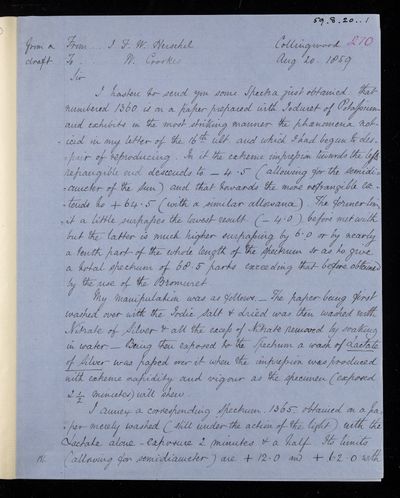 59.8.20..1
from a From... J F. W. Herschel Collingwood 270
draft To. W. Crookes Aug 20. 1859
Sir
I hasten to send you some Spectra just obtained. That
numbered 1360 is on a paper prepared with Ioduret of Potassium
and exhibits in the most striking manner the phenomena not-
iced in my letter of the 16th ult. and which I had begun to des-
-pair of reproducing. In it the extreme impression towards the less
refrangible end descends to - 4.5 (allowing for the semidi-
-ameter of the sun) and that towards the more refrangible ex-
-tends to + 64.5 (with a similar allowance). The former lim-
it a little surpasses the lowest result (- 4.0) before met with
but the latter is much higher surpassing by 6.0 or by nearly
a tenth part of the whole length of the spectrum so as to give
a total spectrum of 68.5 parts exceeding that before obtained
by the use of the Bromuret
My manipulation was as follows - The paper being first
washed over with the Iodic Salt & dried was then washed with
Nitrate of Silver & all the excess of Nitrate removed by soaking
in water - Being then exposed to the spectrum a wash of Lactate
of Silver was passed over it when the impression was produced
with extreme rapidity and vigour as the specimen (exposed
2 1/2 minutes) will shew.
I annex a corresponding Spectrum. 1365. obtained on a pa-
-per merely washed (still under the action of the light) with the
Lactate alone - exposure 2 minutes & a half. Its limits
(allowing for semidiameter) are + 12.0 and + 62.0 with